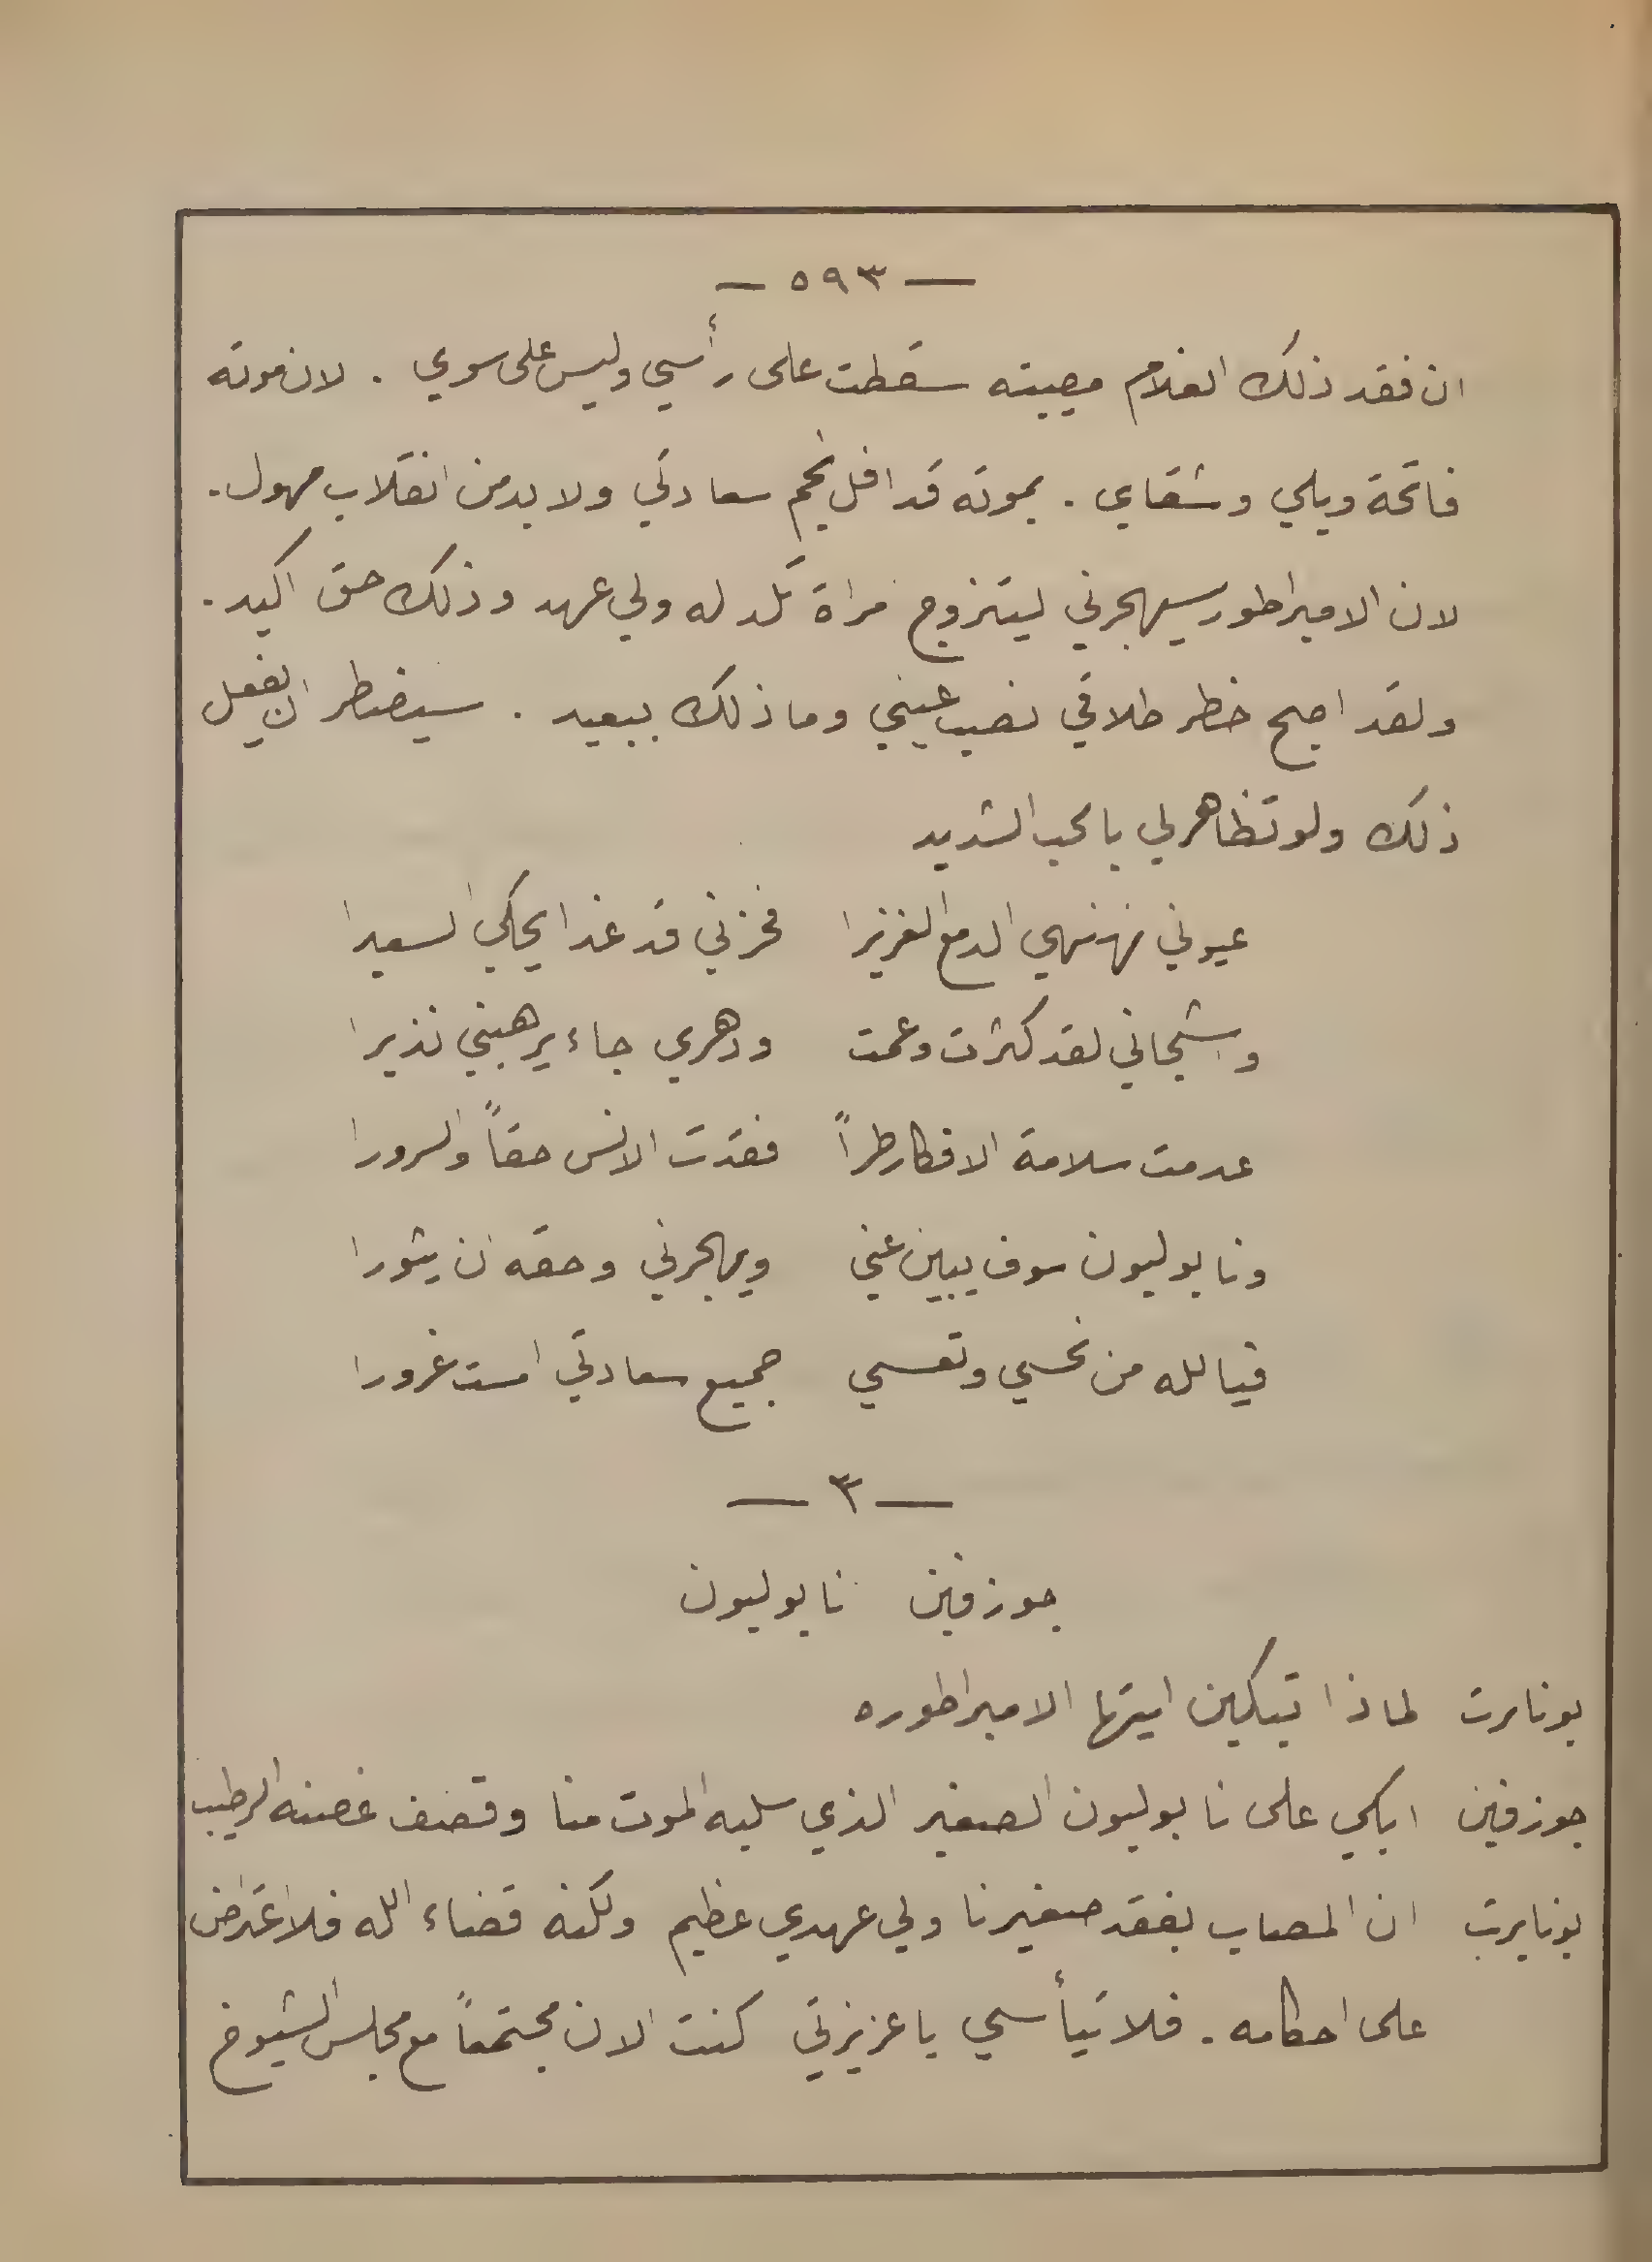 — ٥٩٣ —
ان فقد ذلك الغلام مصيبته سقطت على رأسي وليس على سوي . لان موته
فاتحة ويلي وشقاي . بموته قد افل نجم سعادتي ولا بد من انقلاب مهول .
لان الامبراطور سيهجرني ليتزوج مراة تلد له ولي عهد وذلك حق اكيد .
ولقد اصبح خطر طلاقي نصب عيني وما ذلك ببعيد . سيضطر ان يفعل
ذلك ولو تظاهر لي بالحب الشديد
عيوني نهنهي الدمع الغزيرا فحزني قد غدا يحكي السعيرا
واشجاني لقد كثرت وعمت ودهري جاء يرهبني نذيرا
عدمت سلامة الافكار طراً فقدت الانس حقاً والسرورا
ونابوليون سوف يبين عني ويهجرني وحقه ان يثورا
فيا لله من نحسي وتعسي جميع سعادتي امست غرورا
— ٣ —
جوزفين نابوليون
بونابرت لماذا تبكين ايتها الامبراطوره
جوزفين ابكي على نابوليون الصغير الذي سلبه الموت منا وقصف غصنه الرطيب
بونابرت ان المصاب بفقد صغيرنا ولي عهدي عظيم ولكنه قضاء الله فلا اعتراض
على احكامه . فلا تيأسي يا عزيزتي كنت الان مجتمعاً مع مجلس الشيوخ